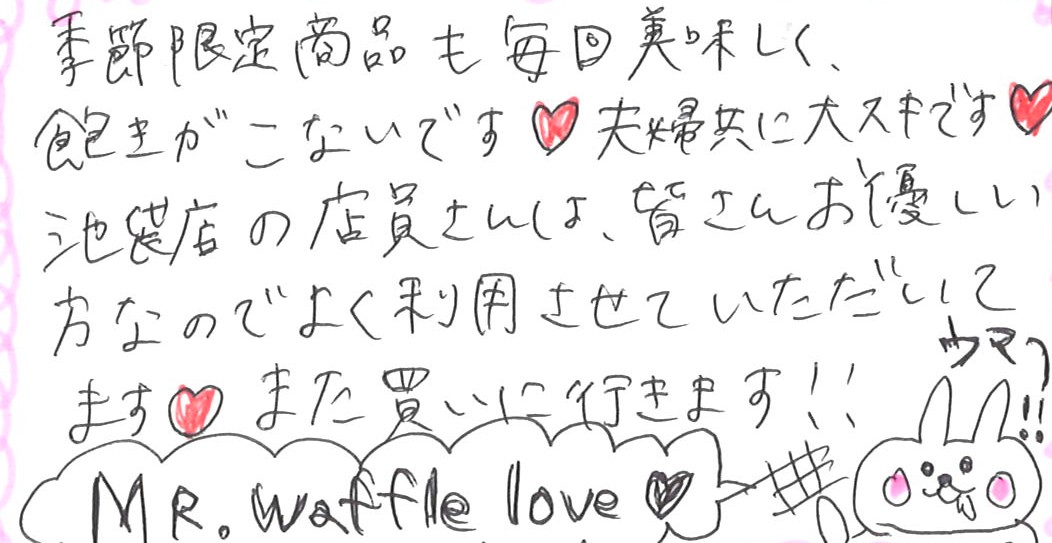 季節限定商品も毎回美味しく、
飽きがこないです♥夫婦共に大スキです♥
池袋店の店員さんは、皆さんお優しい
方なのでよく利用させていただいて
ます♥また買いに行きます!!
ウマッ!!
Mr. waffle love♥